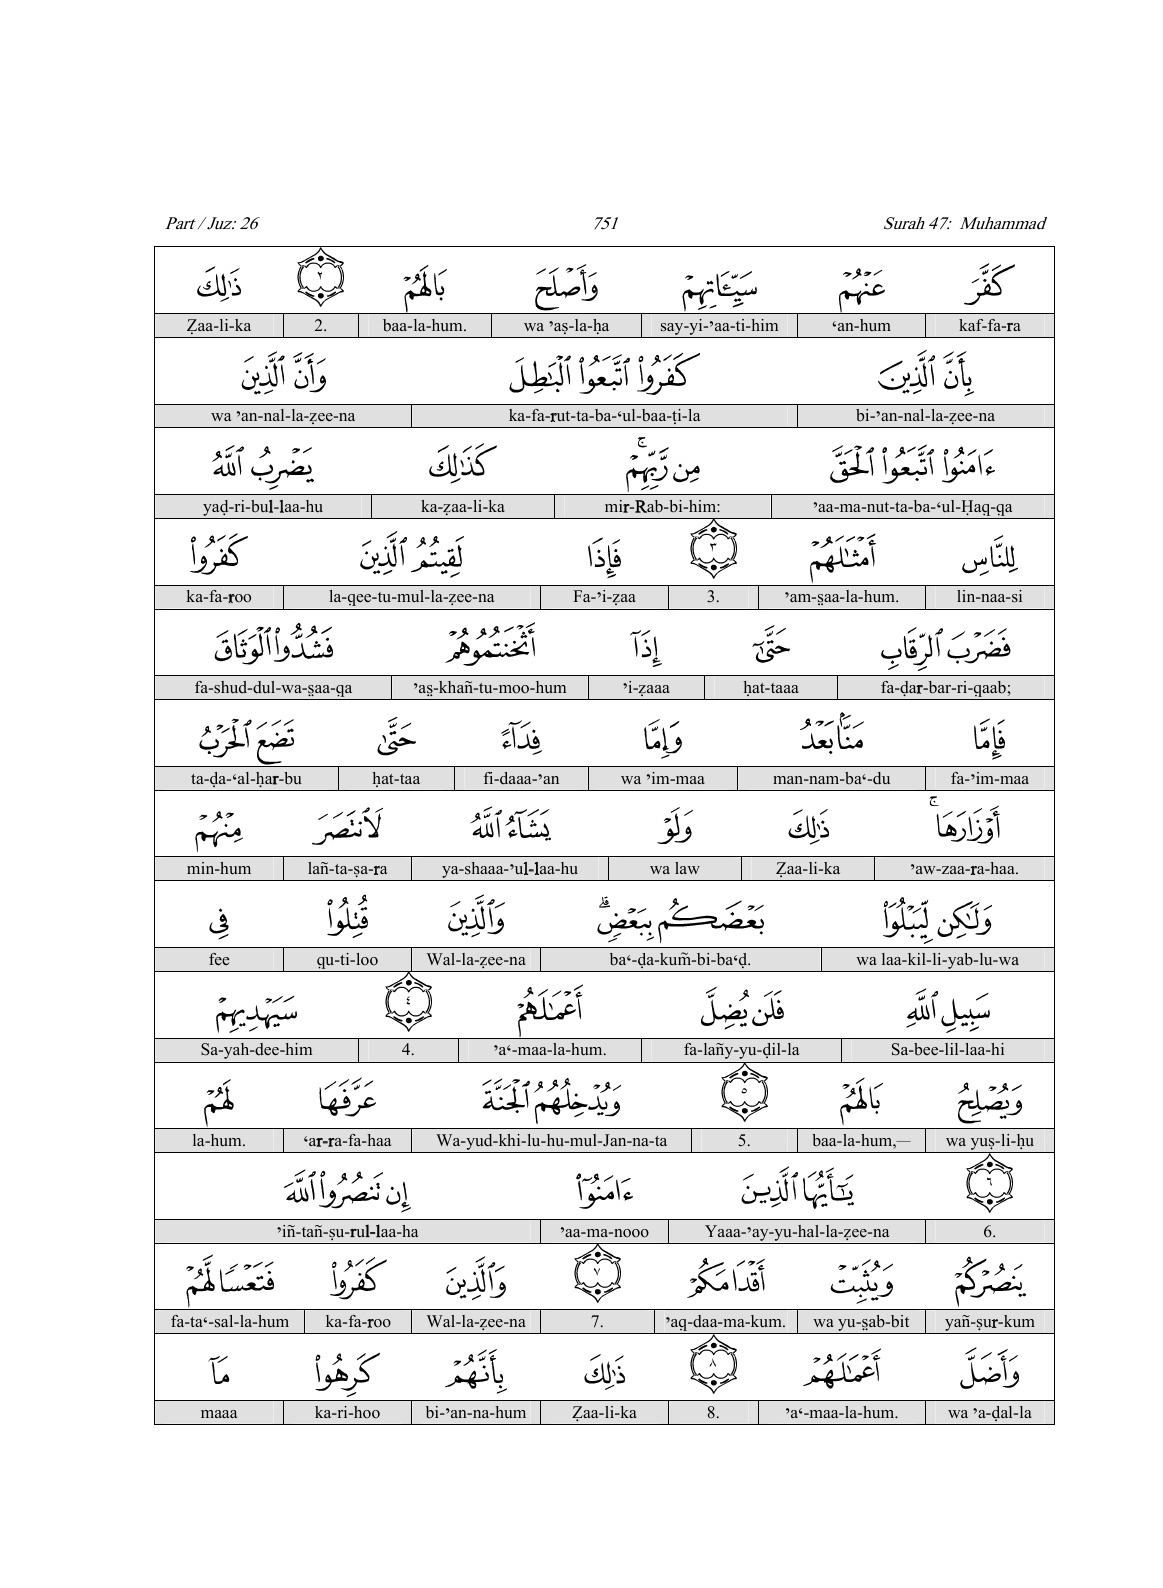 Part / Juz: 26 751 Surah 47: Muhammad
كَفَّرَ عَنْهُمْ سَيِّـَٔاتِهِمْ وَأَصْلَحَ بَالَهُمْ ٢ ذَٰلِكَ
kaf-fa-ra ʻan-hum say-yi-ʼaa-ti-him wa ʼaṣ-la-ḥa baa-la-hum. 2. Ẓaa-li-ka
بِأَنَّ ٱلَّذِينَ كَفَرُوا۟ ٱتَّبَعُوا۟ ٱلْبَـٰطِلَ وَأَنَّ ٱلَّذِينَ
bi-ʼan-nal-la-ẓee-na ka-fa-rut-ta-ba-ʻul-baa-ṭi-la wa ʼan-nal-la-ẓee-na
ءَامَنُوا۟ ٱتَّبَعُوا۟ ٱلْحَقَّ مِن رَّبِّهِمْ ۚ كَذَٰلِكَ يَضْرِبُ ٱللَّهُ
ʼaa-ma-nut-ta-ba-ʻul-Ḥaq-qa mir-Rab-bi-him: ka-ẓaa-li-ka yaḍ-ri-bul-laa-hu
لِلنَّاسِ أَمْثَـٰلَهُمْ ٣ فَإِذَا لَقِيتُمُ ٱلَّذِينَ كَفَرُوا۟
lin-naa-si ʼam-s̱aa-la-hum. 3. Fa-ʼi-ẓaa la-qee-tu-mul-la-ẓee-na ka-fa-roo
فَضَرْبَ ٱلرِّقَابِ حَتَّىٰٓ إِذَآ أَثْخَنتُمُوهُمْ فَشُدُّوا۟ ٱلْوَثَاقَ
fa-ḍar-bar-ri-qaab; ḥat-taaa ʼi-ẓaaa ʼas̱-khañ-tu-moo-hum fa-shud-dul-wa-s̱aa-qa
فَإِمَّا مَنًّۢا بَعْدُ وَإِمَّا فِدَآءً حَتَّىٰ تَضَعَ ٱلْحَرْبُ
fa-ʼim-maa man-nam-baʻ-du wa ʼim-maa fi-daaa-ʼan ḥat-taa ta-ḍa-ʻal-ḥar-bu
أَوْزَارَهَا ۚ ذَٰلِكَ وَلَوْ يَشَآءُ ٱللَّهُ لَٱنتَصَرَ مِنْهُمْ
ʼaw-zaa-ra-haa. Ẓaa-li-ka wa law ya-shaaa-ʼul-laa-hu lañ-ta-ṣa-ra min-hum
وَلَـٰكِن لِّيَبْلُوَا۟ بَعْضَكُم بِبَعْضٍ ۗ وَٱلَّذِينَ قُتِلُوا۟ فِى
wa laa-kil-li-yab-lu-wa baʻ-ḍa-kum̃-bi-baʻḍ. Wal-la-ẓee-na qu-ti-loo fee
سَبِيلِ ٱللَّهِ فَلَن يُضِلَّ أَعْمَـٰلَهُمْ ٤ سَيَهْدِيهِمْ
Sa-bee-lil-laa-hi fa-lañy-yu-ḍil-la ʼaʻ-maa-la-hum. 4. Sa-yah-dee-him
وَيُصْلِحُ بَالَهُمْ ٥ وَيُدْخِلُهُمُ ٱلْجَنَّةَ عَرَّفَهَا لَهُمْ
wa yuṣ-li-ḥu baa-la-hum,— 5. Wa-yud-khi-lu-hu-mul-Jan-na-ta ʻar-ra-fa-haa la-hum.
٦ يَـٰٓأَيُّهَا ٱلَّذِينَ ءَامَنُوٓا۟ إِن تَنصُرُوا۟ ٱللَّهَ
6. Yaaa-ʼay-yu-hal-la-ẓee-na ʼaa-ma-nooo ʼiñ-tañ-ṣu-rul-laa-ha
يَنصُرْكُمْ وَيُثَبِّتْ أَقْدَامَكُمْ ٧ وَٱلَّذِينَ كَفَرُوا۟ فَتَعْسًا لَّهُمْ
yañ-ṣur-kum wa yu-s̱ab-bit ʼaq-daa-ma-kum. 7. Wal-la-ẓee-na ka-fa-roo fa-taʻ-sal-la-hum
وَأَضَلَّ أَعْمَـٰلَهُمْ ٨ ذَٰلِكَ بِأَنَّهُمْ كَرِهُوا۟ مَآ
wa ʼa-ḍal-la ʼaʻ-maa-la-hum. 8. Ẓaa-li-ka bi-ʼan-na-hum ka-ri-hoo maaa